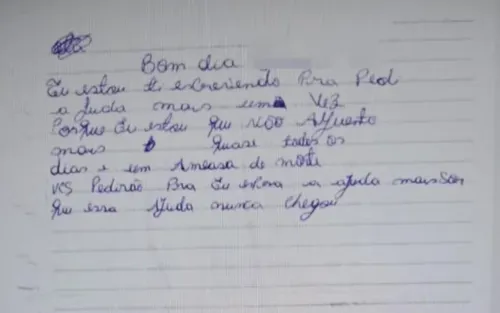 Bom dia
Eu estou te escrevendo Pra Ped
a Juda mais uma Vez
Porque Eu estou que não Aguento
mais quase todos os
dias e um Ameasa de morte
vcs Pedirão Pra Eu espera a ajuda mais Son
que essa Ajuda nunca chegou